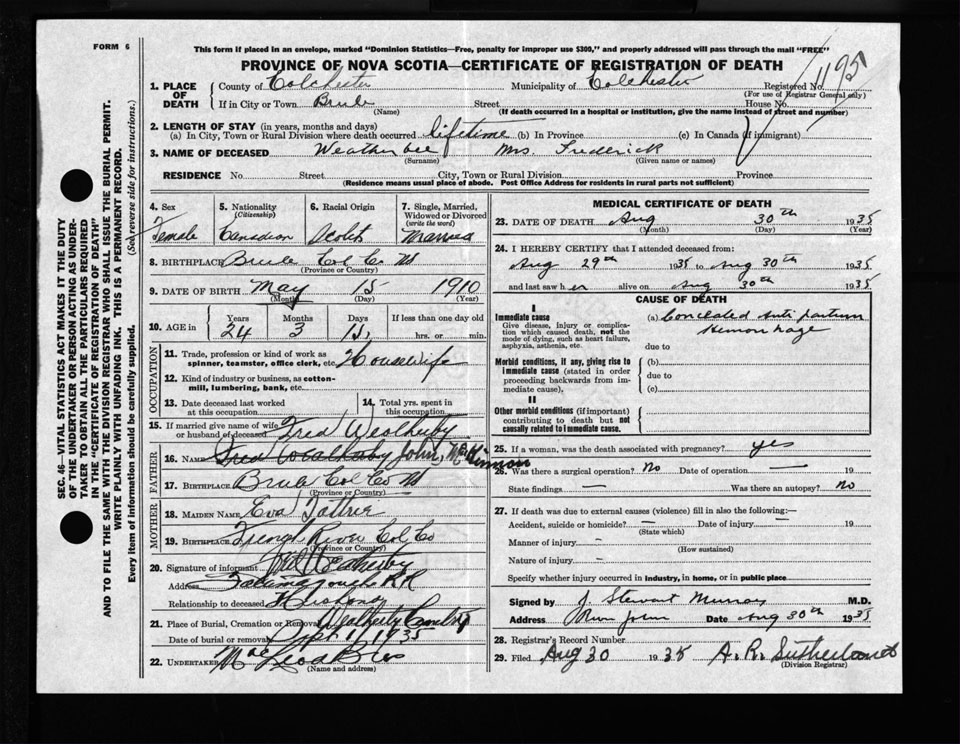 FORM 6
This form if placed in an envelope, marked "Dominion Statistics—Free, penalty for improper use $300," and properly addressed will pass through the mail "FREE"
PROVINCE OF NOVA SCOTIA—CERTIFICATE OF REGISTRATION OF DEATH
1. PLACE OF DEATH
County of Colchester Municipality of Colchester Registered No. 1195
(For use of Registrar General only)
If in City or Town Brule Street House No.
(Name) (If death occurred in a hospital or institution, give the name instead of street and number)
2. LENGTH OF STAY (in years, months and days)
(a) In City, Town or Rural Division where death occurred lifetime (b) In Province (c) In Canada (if immigrant)
3. NAME OF DECEASED Weatherbee Mrs. Frederick
(Surname) (Given name or names)
RESIDENCE No. Street City, Town or Rural Division Province
(Residence means usual place of abode. Post Office Address for residents in rural parts not sufficient)
4. Sex
Female
5. Nationality
(Citizenship)
Canadian
6. Racial Origin
Scotch
7. Single, Married, Widowed or Divorced
(write the word)
Married
8. BIRTHPLACE Brule Col Co NS
(Province or Country)
9. DATE OF BIRTH May 15 1910
(Month) (Day) (Year)
10. AGE in
Years Months Days If less than one day old
24 3 15 hrs. or min.
OCCUPATION
11. Trade, profession or kind of work as spinner, teamster, office clerk, etc. Housewife
12. Kind of industry or business, as cotton-mill, lumbering, bank, etc.
13. Date deceased last worked at this occupation
14. Total yrs. spent in this occupation
15. If married give name of wife or husband of deceased Fred Weatherby
FATHER
16. NAME John McKinnon
17. BIRTHPLACE Brule Col Co NS
(Province or Country)
MOTHER
18. MAIDEN NAME Eva Tattrie
19. BIRTHPLACE French River Col Co
(Province or Country)
20. Signature of informant Fred Weatherby
Address Tatamagouche RR
Relationship to deceased Husband
21. Place of Burial, Cremation or Removal Weatherby Cemetry
Date of burial or removal Sept 1, 1935
22. UNDERTAKER
(Name and address)
MEDICAL CERTIFICATE OF DEATH
23. DATE OF DEATH Aug 30th 1935
(Month) (Day) (Year)
24. I HEREBY CERTIFY that I attended deceased from:
Aug 29th 1935 to Aug 30th 1935
and last saw her alive on Aug 30th 1935
CAUSE OF DEATH
I
Immediate cause
Give disease, injury or complication which caused death, not the mode of dying, such as heart failure, asphyxia, asthenia, etc.
(a) Concealed Anti partum Hemorrhage
due to
Morbid conditions, if any, giving rise to immediate cause (stated in order proceeding backwards from immediate cause).
(b)
due to
(c)
II
Other morbid conditions (if important) contributing to death but not causally related to immediate cause.
25. If a woman, was the death associated with pregnancy? yes
26. Was there a surgical operation? No Date of operation — 19
State findings — Was there an autopsy? No
27. If death was due to external causes (violence) fill in also the following:—
Accident, suicide or homicide? — Date of injury — 19
(State which)
Manner of injury –
(How sustained)
Nature of injury –
Specify whether injury occurred in industry, in home, or in public place
Signed by J. Stewart Murray M.D.
Address River John Date Aug 30th 1935
28. Registrar's Record Number
29. Filed Aug 30 1935 A. R. Sutherland
(Division Registrar)
SEC. 46—VITAL STATISTICS ACT MAKES IT THE DUTY
OF THE UNDERTAKER OR PERSON ACTING AS UNDER-
TAKER TO OBTAIN ALL THE PARTICULARS REQUIRED
IN THE "CERTIFICATE OF REGISTRATION OF DEATH"
AND TO FILE THE SAME WITH THE DIVISION REGISTRAR WHO SHALL ISSUE THE BURIAL PERMIT.
WRITE PLAINLY WITH UNFADING INK. THIS IS A PERMANENT RECORD.
Every item of information should be carefully supplied. (See reverse side for instructions.)